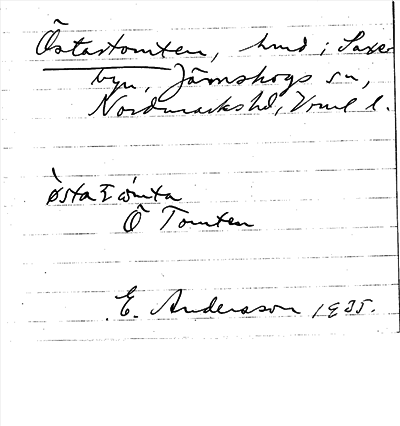 Östastomten, hmd i Saxe-
byn, Järnskogs sn,
Nordmarks hd, Vrml l.
Ö Tomten
E. Andersson 1935.